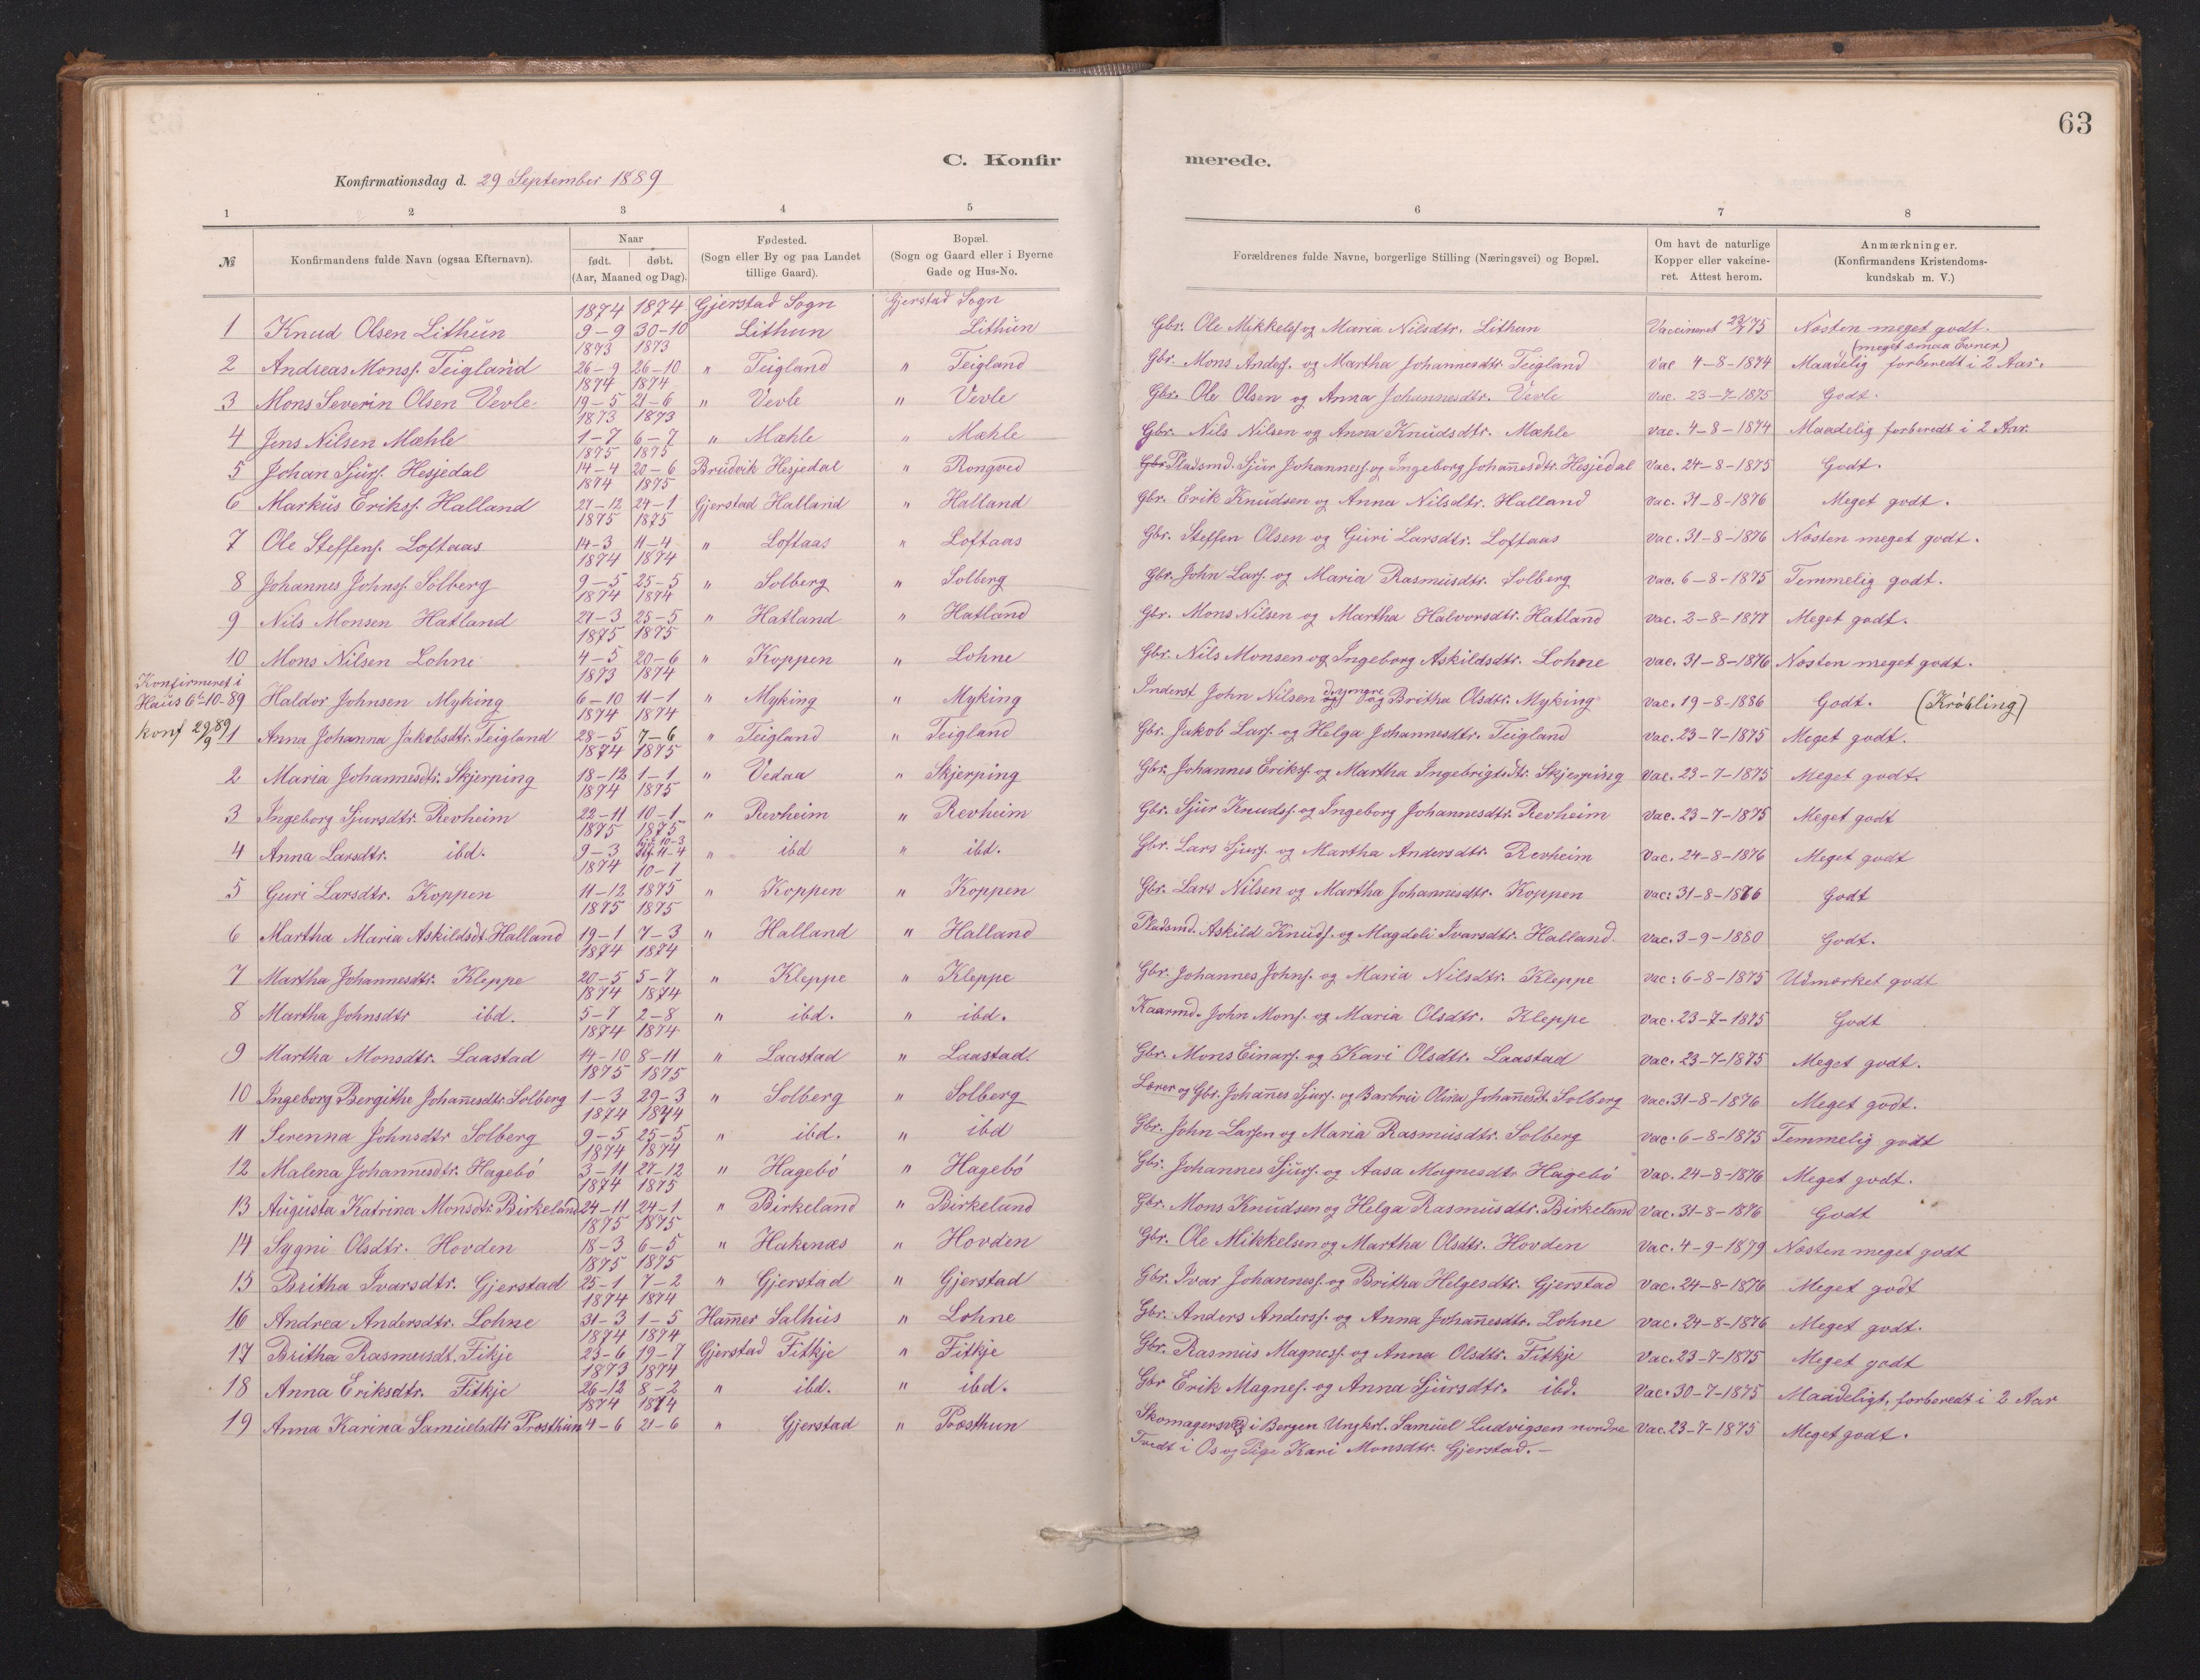 63
C. Konfirmerede.
Konfirmationsdag d. 29 September 1889
1 2 3 4 5 6 7 8
№ Konfirmandens fulde Navn (ogsaa Efternavn). Naar født. døbt. (Aar, Maaned og Dag). Fødested. (Sogn eller By og paa Landet tillige Gaard). Bopæl. (Sogn og Gaard eller i Byerne Gade og Hus-No. Forældrenes fulde Navne, borgerlige Stilling (Næringsvei) og Bopæl. Om havt de naturlige Kopper eller vakcineret. Attest herom. Anmærkninger. (Konfirmandens Kristendomskundskab m. V.)
1 Knud Olsen Lithun 1874 9-9 1874 30-10 Gjerstad Sogn Lithun Gjerstad Sogn Lithun Gbr. Ole Mikkelsf og Maria Nilsdtr. Lithun Vaccineret 23/7 75 Næsten meget godt.
2 Andreas Monsf. Teigland 1873 26-9 1873 26-10 " Teigland " Teigland Gbr. Mons Andersf. og Martha Johannesdtr. Teigland vac 4-8-1874 Maadelig (meget smaa Evner) forberedt i 2 Aar.
3 Mons Severin Olsen Vevle 1874 19-5 1874 21-6 " Vevle " Vevle Gbr. Ole Olsen og Anna Johannesdtr. Vevle vac. 23-7-1875 Godt.
4 Jens Nilsen Mæhle 1873 1-7 1873 6-7 " Mæhle " Mæhle Gbr. Nils Nilsen og Anna Knudsdtr. Mæhle vac. 4-8-1874 Maadelig forberedt i 2 Aar
5 Johan Sjursf. Hesjedal 1875 14-4 1875 20-6 Brudvik Hesjedal " Rongved Gbr Pladsmd. Sjur Johannesf. og Ingeborg Johan̄esdtr. Hesjedal vac. 24-8-1875 Godt.
6 Markus Eriksf. Halland 1874 27-12 1875 24-1 Gjerstad Halland " Halland Gbr. Erik Knudsen og Anna Nilsdtr. Halland vac. 31-8-1876 Meget godt.
7 Ole Steffensf. Loftaas 1875 14-3 1875 11-4 " Loftaas " Loftaas Gbr. Steffen Olsen og Guri Larsdtr. Loftaas vac. 31-8-1876 Næsten meget godt.
8 Johannes Johnsf. Solberg 1874 9-5 1874 25-5 " Solberg " Solberg Gbr. John Larsf. og Maria Rasmusdtr. Solberg vac. 6-8-1875 Temmelig godt.
9 Nils Monsen Hatland 1874 27-3 1874 25-5 " Hatland " Hatland Gbr. Mons Nilsen og Martha Halvorsdtr. Hatland vac. 2-8-1877 Meget godt.
10 Mons Nilsen Lohne 1875 4-5 1875 20-6 " Koppen " Lohne Gbr. Nils Monsen og Ingeborg Askildsdtr. Lohne vac. 31-8-1876 Næsten meget godt.
Konfirmeret i Haus 6te-10-89 Haldor Johnsen Myking 1873 6-10 1874 11-1 " Myking " Myking Inderst John Nilsen d. yngre og Britha Olsdtr. Myking vac. 19-8-1886 Godt. (Krøbling)
konf 29/9 89 1 Anna Johanna Jakobsdtr. Teigland 1874 28-5 1874 7-6 " Teigland " Teigland Gbr. Jakob Larsf. og Helga Johannesdtr. Teigland vac. 23-7-1875 Meget godt.
2 Maria Johannesdtr. Skjerping 1874 18-12 1875 1-1 " Vedaa " Skjerping Gbr. Johannes Eriksf. og Martha Ingebrigtsdtr. Skjerping vac. 23-7-1875 Meget godt.
3 Ingeborg Sjursdtr. Revheim 1874 22-11 1875 10-1 " Revheim " Revheim Gbr. Sjur Knudsf. og Ingeborg Johannesdtr. Revheim vac. 23-7-1875 Meget godt
4 Anna Larsdtr. ibd. 1875 9-3 1875 hjd. 10-3 Stf. 11-4 " ibd " ibd. Gbr. Lars Sjursf. og Martha Andersdtr. Revheim vac. 24-8-1876 Meget godt
5 Guri Larsdtr. Koppen 1874 11-12 10-1 1875 " Koppen " Koppen Gbr. Lars Nilsen og Martha Johannesdtr. Koppen vac: 31-8-1876 Godt
6 Martha Maria Askildsdt Halland 1875 19-1 1875 7-3 " Halland " Halland Pladsmd. Askild Knudsf. og Magdeli Ivarsdtr. Halland. vac. 3-9-1880 Godt.
7 Martha Johannesdtr. Kleppe 1874 20-5 1874 5-7 " Kleppe " Kleppe Gbr. Johannes Johnsf. og Maria Nilsdtr. Kleppe vac: 6-8-1875 Udmærket godt
8 Martha Johnsdtr ibd. 1874 5-7 1874 2-8 " ibd. " ibd. Kaarmd. John Monsf. og Maria Olsdtr. Kleppe vac. 23-7-1875 Godt
9 Martha Monsdtr. Laastad 1874 14-10 1874 8-11 " Laastad " Laastad. Gbr. Mons Einarsf. og Kari Olsdtr. Laastad vac. 23-7-1875 Meget godt.
10 Ingeborg Bergithe Johan̄esdtr. Solberg 1875 1-3 1875 29-3 " Solberg " Solberg Lærer og Gbr. Johan̄es Sjursf. og Barbru Olina Johan̄esdt. Solberg vac. 31-8-1876 Meget godt.
11 Serenna Johnsdtr Solberg 1874 9-5 1874 25-5 " ibd. " ibd Gbr. John Larsen og Maria Rasmusdtr. Solberg vac. 6-8-1875 Temmelig godt
12 Malena Johannesdtr. Hagebø 1874 3-11 1874 27-12 " Hagebø " Hagebø Gbr. Johannes Sjursf. og Aasa Magnesdtr Hagebø vac. 24-8-1876 Meget godt.
13 Augusta Katrina Monsdtr Birkeland 1874 24-11 1875 24-1 " Birkeland " Birkeland Gbr. Mons Knudsen og Helga Rasmusdtr. Birkeland vac. 31-8-1876 Godt
14 Sygni Olsdtr. Hovden 1875 18-3 1875 6-5 " Hakenæs " Hovden Gbr. Ole Mikkelsen og Martha Olsdtr. Hovden vac. 4-9-1879 Næsten meget godt
15 Britha Ivarsdtr. Gjerstad 1875 25-1 1875 7-2 " Gjerstad " Gjerstad Gbr. Ivar Johannesf. og Britha Helgesdtr. Gjerstad vac. 24-8-1876 Meget godt
16 Andrea Andersdtr. Lohne 1874 31-3 1874 1-5 Ham̄er Salhus " Lohne Gbr. Anders Andersf. og Anna Johan̄esdtr. Lohne vac. 24-8-1876 Meget godt.
17 Britha Rasmusdt. Fikje 1874 23-6 1874 19-7 Gjerstad Fitkje " Fitkje Gbr. Rasmus Magnesf. og Anna Olsdtr. Fitkje vac. 23-7-1875 Meget godt
18 Anna Eriksdtr. Fitkje 1873 26-12 1874 8-2 " ibd. " ibd. Gbr Erik Magnesf. og Anna Sjursdtr. ibd. vac. 30-7-1875 Maadeligt, forberedt i 2 Aar
19 Anna Karina Samuelsdtr Prosthun 1874 4-6 1874 21-6 " Gjerstad " Prosthun Skomagersv i Bergen Ungkrl. Samuel Ludvigsen nordre Tvedt i Os og Pige Kari Monsdtr. Gjerstad.- vac. 23-7-1875 Meget godt.